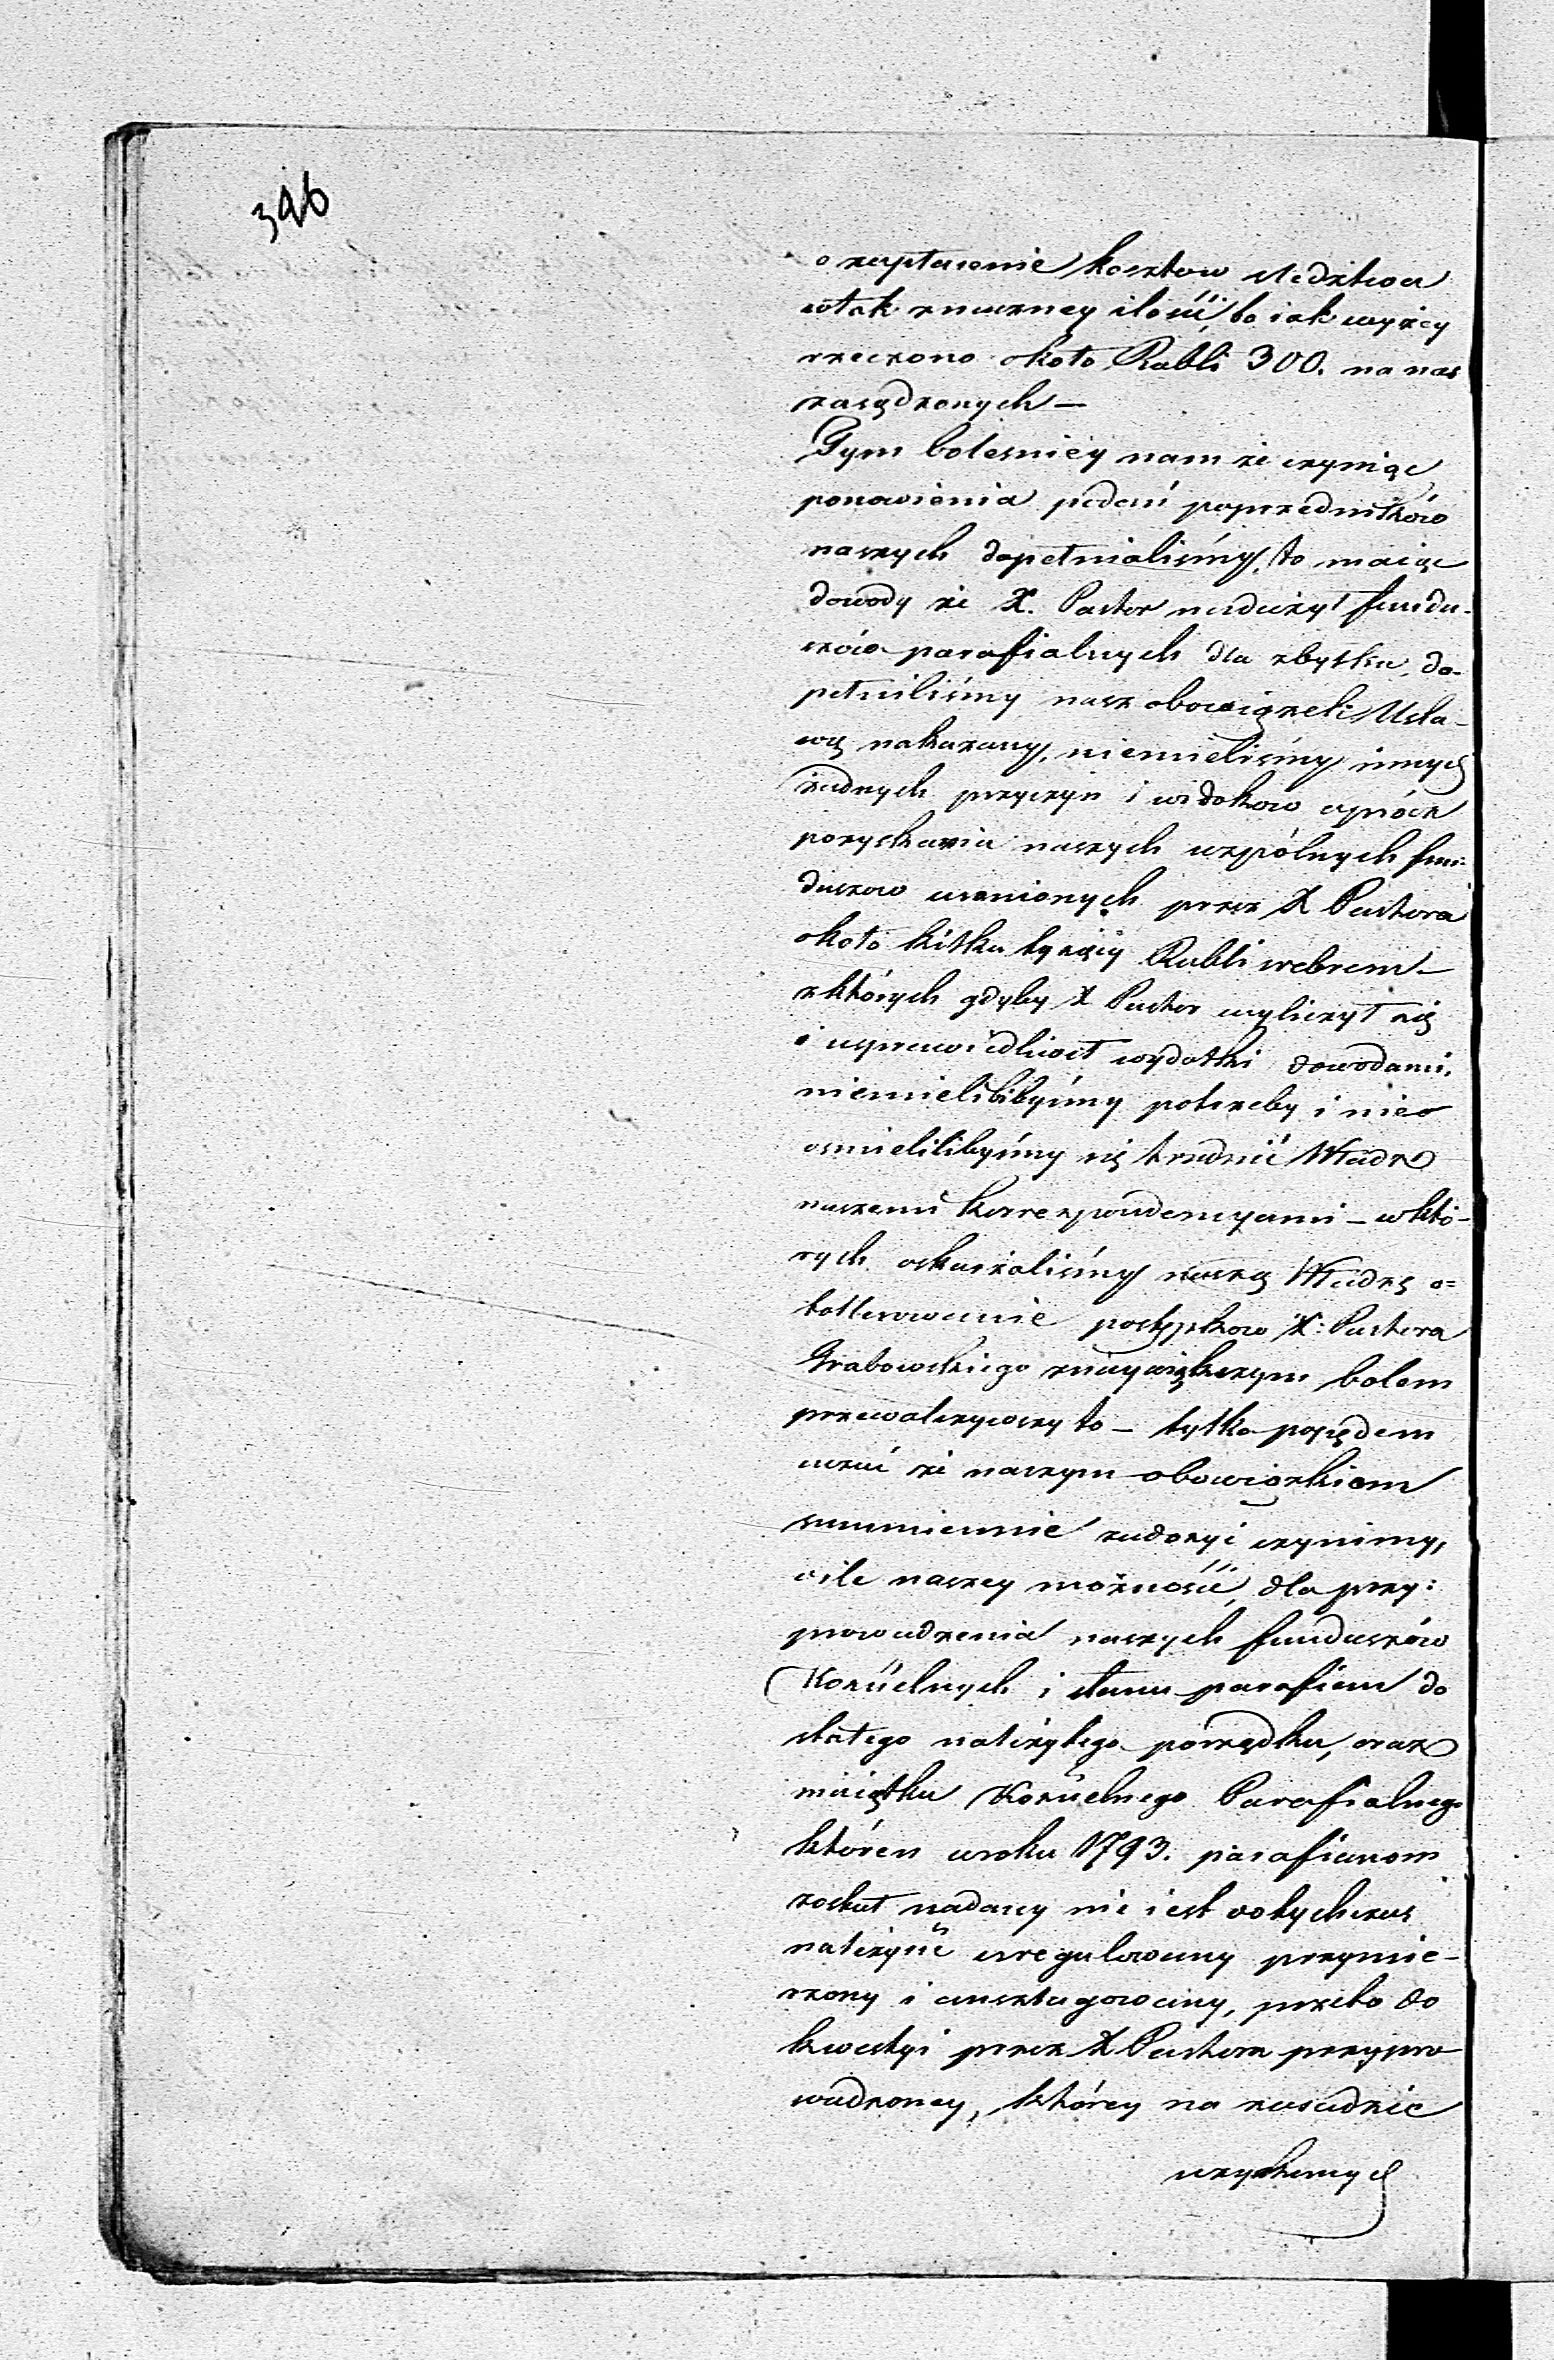 396
o zapłacenie kosztow sledztwa
wtak znaczney ilości, bo iak wyżey
rzeczono około Rubli 300. na nas
zasądzonych —
Tym bolesniey nam że czyniąc
ponowienia podań poprzedników
naszych dopełnialiśmy, to maiąc
dowody że X. Pastor nadużył fundu-
szów parafialnych dla zbytku, do-
pełniliśmy nasz obowiązek Usta-
wą nakazany, niemieliśmy innych
żadnych przyczyn i widokow oprócz
pozyskania naszych wspólnych fun-
duszow uronionych przez X Pastora
około kilku tysięcy Rubli srebrem —
z których gdyby X Pastor wyliczył się
i usprawiedliwił wydatki dowodami,
niemielibibyśmy potrzeby i nie
osmielilibyśmy się trudnić Władz
naszemi korrespondencyami — w któ-
rych oskarżaliśmy naszą Władzę o=
tollerowanie postępkow X: Pastora
Grabowskiego znaywiększym bolem
przewalczywszy to — tylko popędem
uczuć że naszym obowiązkiem
summiennie zadosyć czynimy,
o ile naszey możności, dla przy:
prowadzenia naszych funduszów
Kościelnych i stanu parafian do
stałego należytego porządku, oraz
maiątku Kościelnego Parafialnego
któren wroku 1793. parafianom
został nadany nie iest dotychczas
należycie uregulowany przymie-
rzony i anszlagowany, przeto do
kwestyi przez X Pastora przypro-
wadzoney, którey na zasadzie
uzyskanych